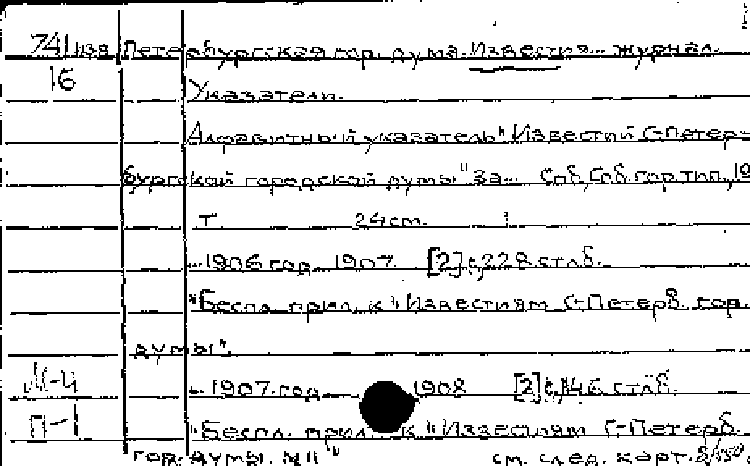 741 Петербургская гор. дума. Известия... журнал.
16 Указатели.
Алфавитный указатель "Известий С-Петер-
бургской городской думы" за... Спб, Спб. гор. тип., 19
т. 24 см.
...1906 год. 1907. [2] с, 228 стлб.
"Беспл. прил. к "Известиям С-Петерб. гор.
думы".
М-4 ...1907 год 1908 [2] с, 146 стлб.
П-1 "Беспл. прил. к "Известиям С-Петерб.
гор. думы. см. след. карт.